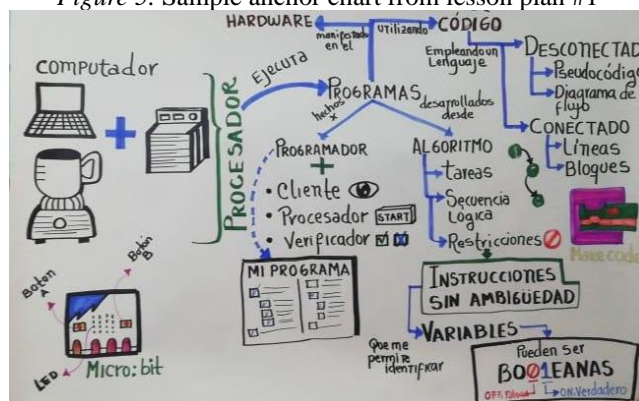 Figure 5. Sample anchor chart from lesson plan #1
HARDWARE
manipulado
en el
utilizando
CÓDIGO
Empleando un
Lenguaje
DESCONECTAD
Pseudocódig
Diagrama de
flujo
CONECTADO
Líneas
Bloques
Make code
computador
PROCESADOR
Ejecuta
PROGRAMAS
hechos
x
desarrollados
desde
PROGRAMADOR
Cliente
Procesador START
Verificador
MI PROGRAMA
ALGORITMO
tareas
Secuencia
Lógica
Restricciones
INSTRUCCIONES
SIN AMBIGÜEDAD
Que me
permite
identificar
VARIABLES
Pueden ser
BO01EANAS
OFF
ON. Verdadero
Boton
A
Boton
B
LED
MICRO:bit